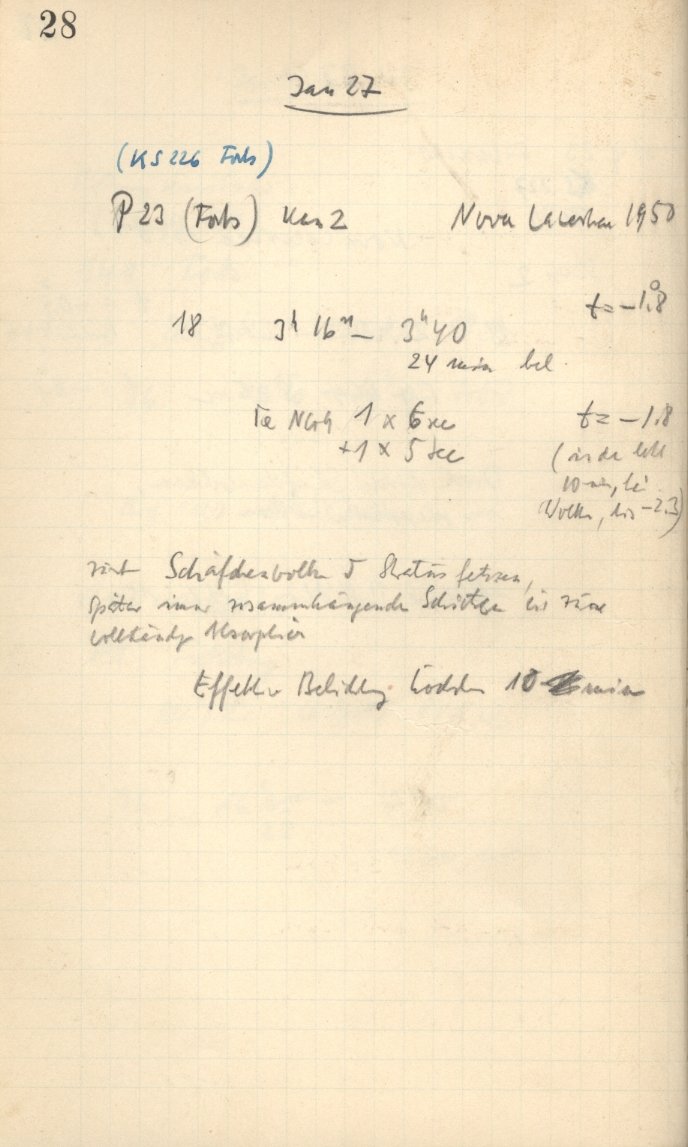 28
Jan 27
(KS 226 Forts)
P 23 (Forts) Kam 2 Nova Lacertae 1950
t = -1°.8
18 3h 16m – 3h 40
24 min bel.
1 x 6 sec t = -1.8
+1 x 5 sec (in der
10 min,
Wolken, bis -2.3)
Schäfchenwolken Stratusfetzen,
später immer zusammenhängende Schichten bis
vollständige Absorption
Effektive Belichtung höchstens 10 min